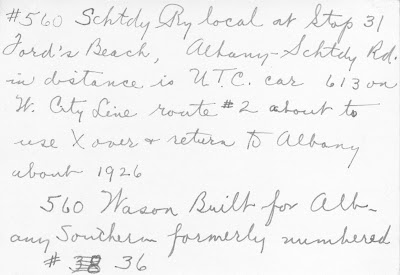 #560 Schtdy Ry local at Stop 31
Ford's Beach, Albany-Schtdy Rd.
in distance is U.T.C. car 613 on
W. City Line route #2 about to
use X over & return to Albany
about 1926
560 Wason Built for Alb-
any Southern formerly numbered
# 36